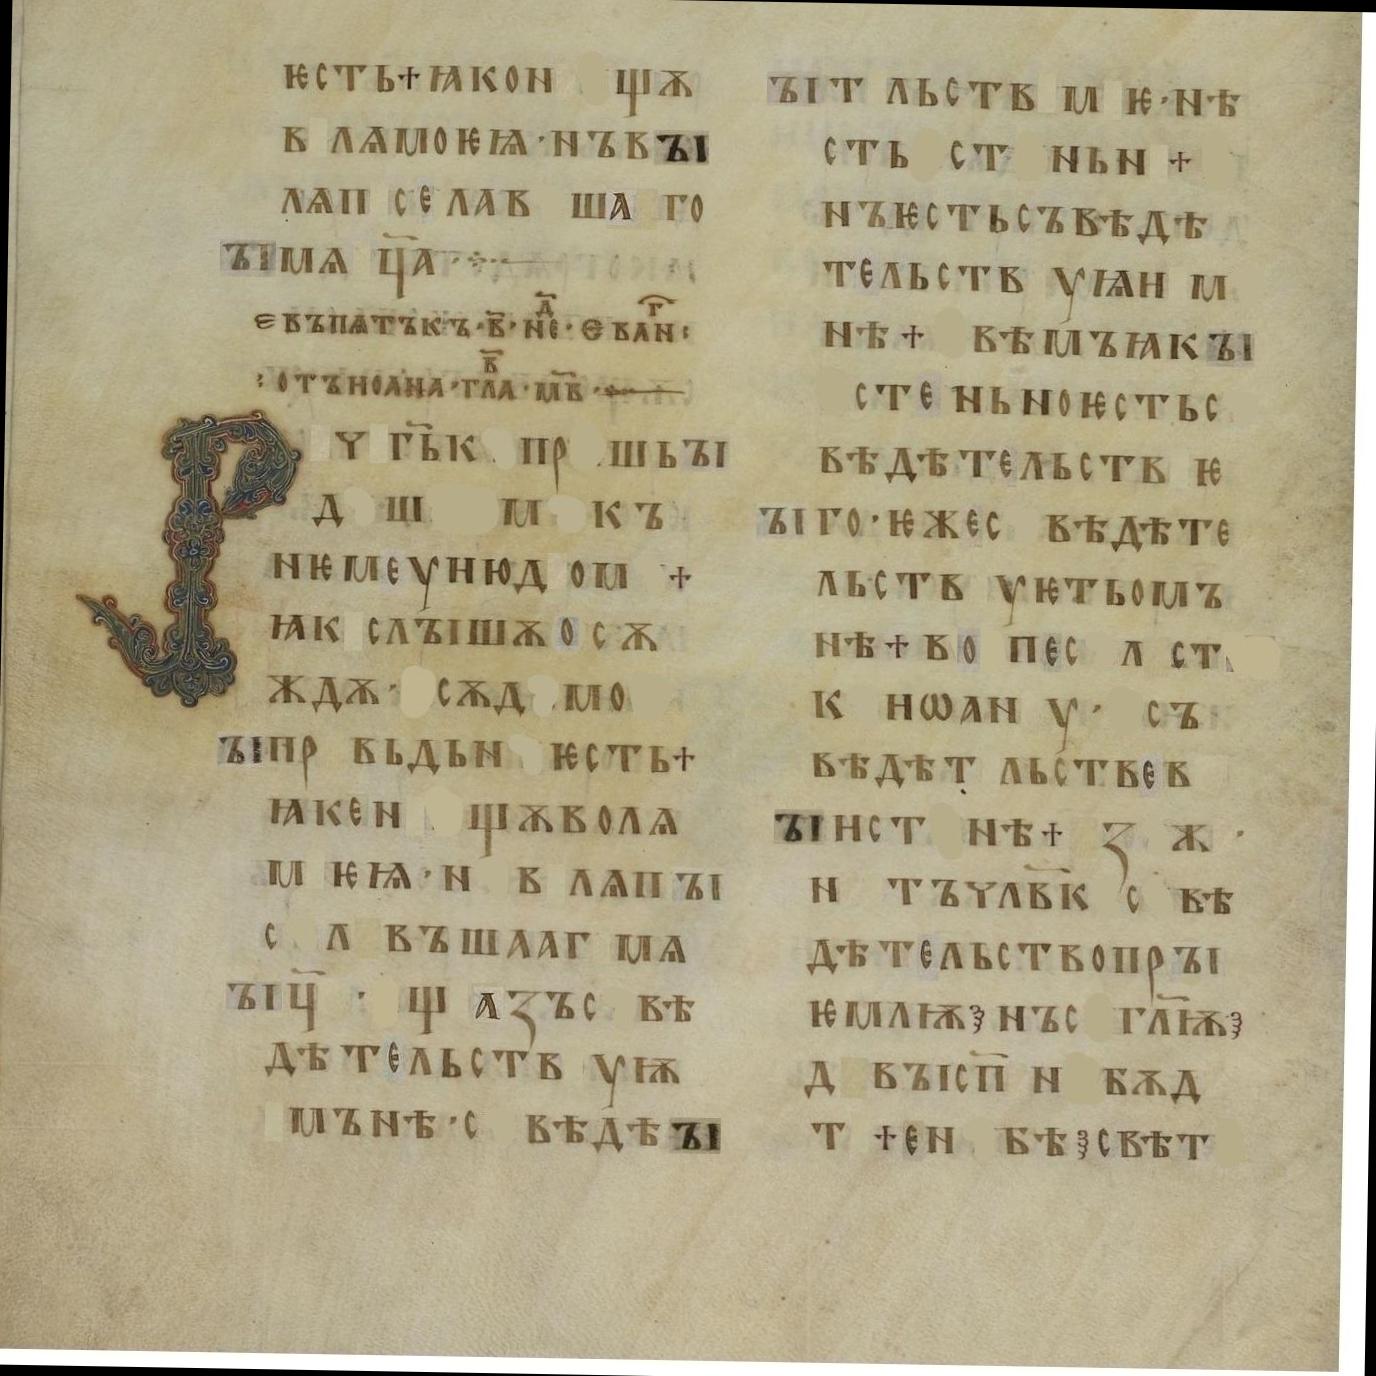 ѥсть+ꙗкон ѱѫ
в лѧмоеꙗ·нъвъі
лѧп селав ша го
ъімѧ ц҃а·
евъпѧтъкъ·в҃·не·еван:
:отъиоана·гла·мв·
Р ү г҃ьк пр шьъі
д щ м къ
нѥмеунюд ом +
ꙗк слъішѫ о сѫ
ждѫ· сѫд мо
ъіпр вьдьн ѥсть+
ꙗкен ѱѫволѧ
м ѥꙗ·н в лѧпъі
с л въшааг мѧ
ъіц҃ · ѱ азъс вѣ
дѣтельств уѭ
мънѣ·с вѣдѣъі
ъіт льств м ѥ·нѣ
сть ст ньн +
нъѥстьсъвѣдѣ
тельств уѩи м
нѣ+ вѣмъꙗкъі
стеньноѥстьс
вѣдѣтельств ѥ
ъіго·ѥжес вѣдѣте
льств уѥтьомъ
нѣ+во пес л ст
к иѡан у· съ
вѣдѣт льствев
ъіист нѣ+ з ж ·
н тъүлв҃к с вѣ
дѣтельствопръі
ѥмлѭ꙳нъс гл҃ѭ꙳
д въісп҃ н бѫд
т +ен бѣ꙳свѣт